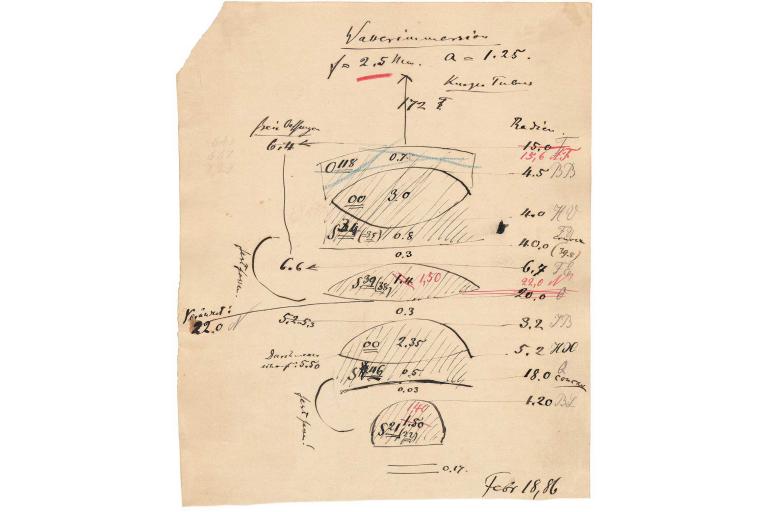 Wasserimmersion
f = 2.5 Mm. a = 1.25.
Kurzer Tubus
172
freie Oeffnungen
Radien.
6.4
15.0 F
15,6
O 118 0.7
4.5 BB
00 3.0
4.0 HV
S 34 (35) 0.8
40,0
concav
(39.8)
0.3
6.6
6.7
fest fassen!
S 39 (38) 1.4 1,50
22,0 N
20.0
0.3
Verändert:
22.0 N
5.2-5,3
3.2
00 2.35
5.2
Durchmesser
scharf: 5.50
S 46 0.5
18.0
concav
0.03
1.20
fest fassen!
1,40
1.50
S 21 (22)
0.17.
Febr 18,86